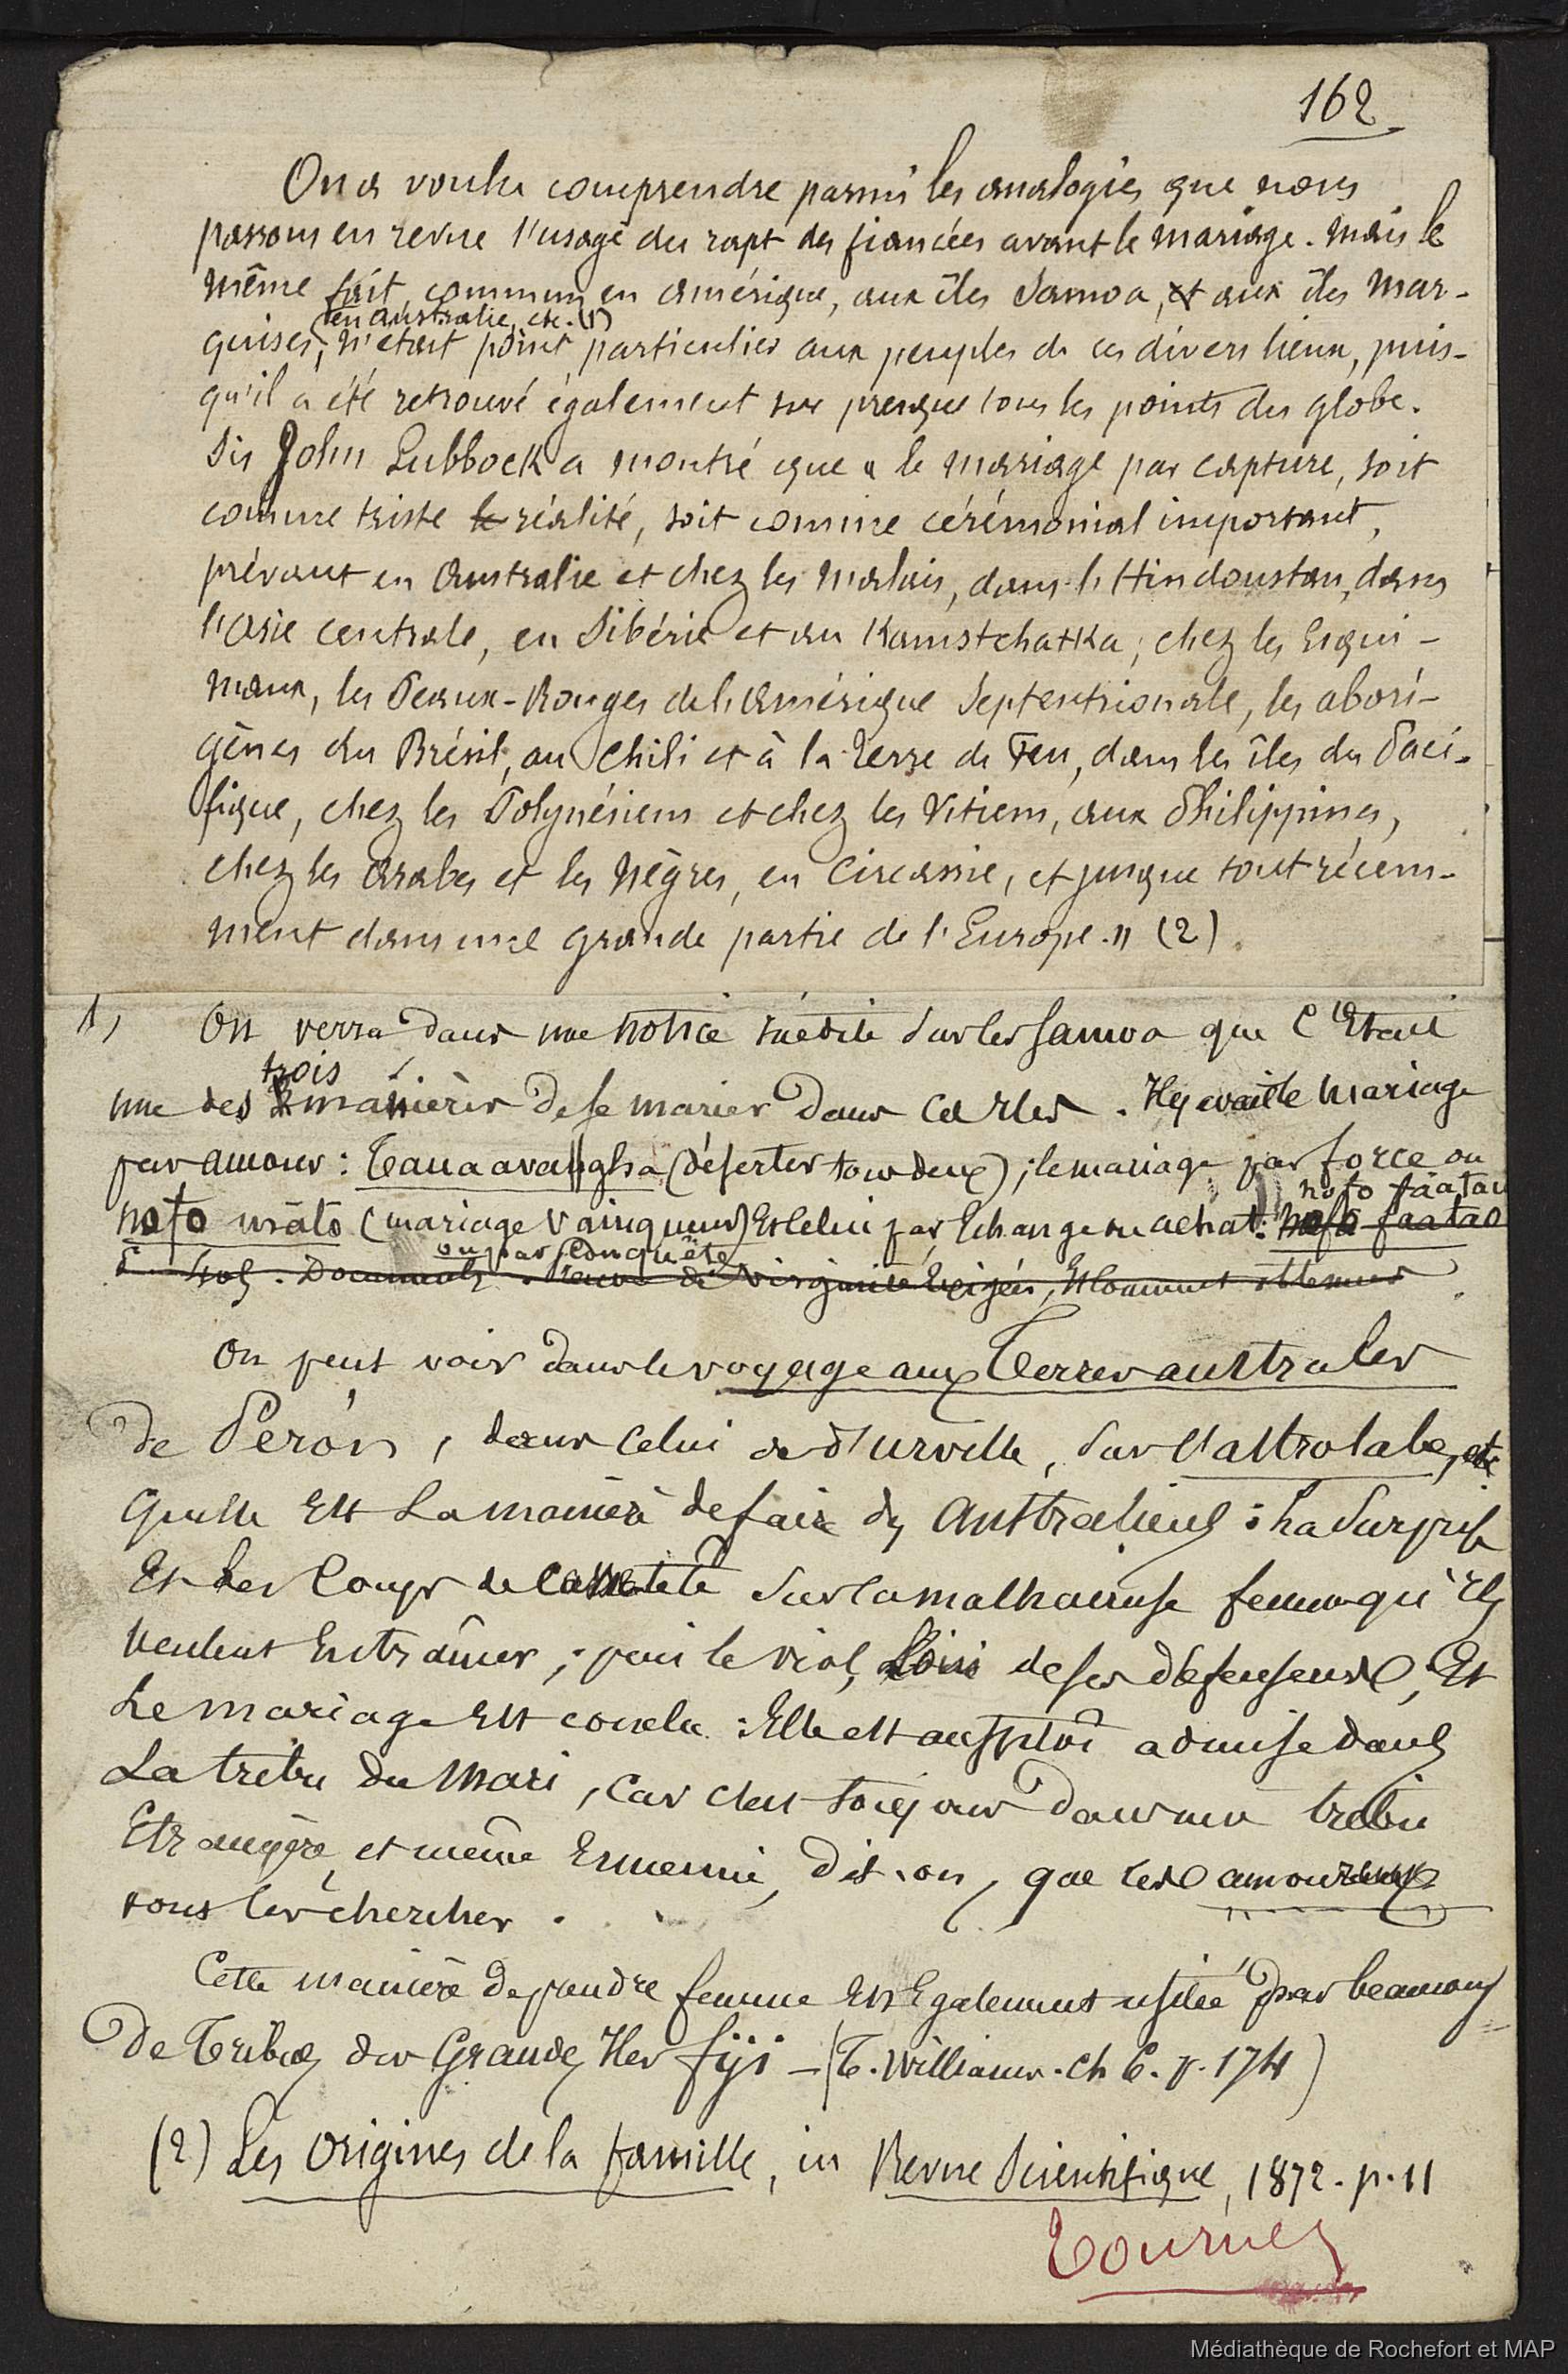 162
On a voulu comprendre parmi les analogies que nous
passons en revue l'usage du rapt des fiancées avant le mariage. Mais le
même fait, commun en amérique, aux îles Samoa, et aux îles Mar-
en australie, etc. (1)
quises, n'était point particulier aux peuples de ces divers lieux, puis-
qu'il a été retrouvé également sur presque tous les points du globe.
Sir John Lubbock a montré que « le mariage par capture, soit
comme triste le réalité, soit comme cérémonial important,
prévaut en Australie et chez les Malais, dans l'Hindoustan, dans
l'Asie centrale, en Sibérie et au Kamstchatka; chez les Esqui-
maux, les Peaux-Rouges de l'Amérique Septentrionale, les abori-
gènes du Brésil, au Chili et à la Terre de Feu, dans les îles du Paci-
fique, chez les Polynésiens et chez les Vitiens, aux Philippines,
chez les Arabes et les Nègres, en Circassie, et jusque tout récem-
ment dans une grande partie de l'Europe. » (2)
1, On verra dans une notice inédite sur les Samoa que c'était
trois
une des manières de se marier dans ces îles. Il y avait le mariage
par amour : Tana avangha (déserter tous deux) ; le mariage par force ou
nofo faatau
nofo mâlo (mariage vainqueur) et celui par Echange ou achat : nofo faatau
ou par conquête
virginité exigée, et comment obtenues
On peut voir dans le voyage aux Terres australes
de Peron, dans celui de d'urville, sur l'astrolabe, etc
quelle est la manière de faire des australiens : la surprise
Et les coups de casse tête sur la malheureuse femme qu'ils
veulent entraîner ; puis le viol, loin de ses défenseurs, Et
le mariage est conclu : Elle est aussitôt admise dans
la tribu du mari, car c'est toujours dans une tribu
Etrangère, et même Ennemie, dit-on, que les amoureux
vont les chercher.
Cette manière de prendre femme est Egalement usitée par beaucoup
de Tribus des Grandes Iles fiji – (T. Williams. Ch 6. p. 174)
(2) Les Origines de la famille, in Revue Scientifique, 1872. p. 11
Tournez
Médiathèque de Rochefort et MAP